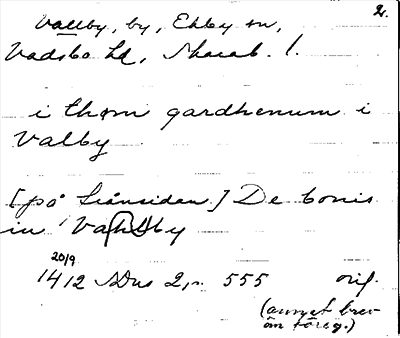 2.
Valby, by, Ekby sn,
Vadsbo hd, Skarab. l.
i thøm gardhenum i
Valby
[på frånsidan] De bonis
in Vahlby
20/9
1412 SDns 2, s. 555 orig.
(annat brev
än föreg.)